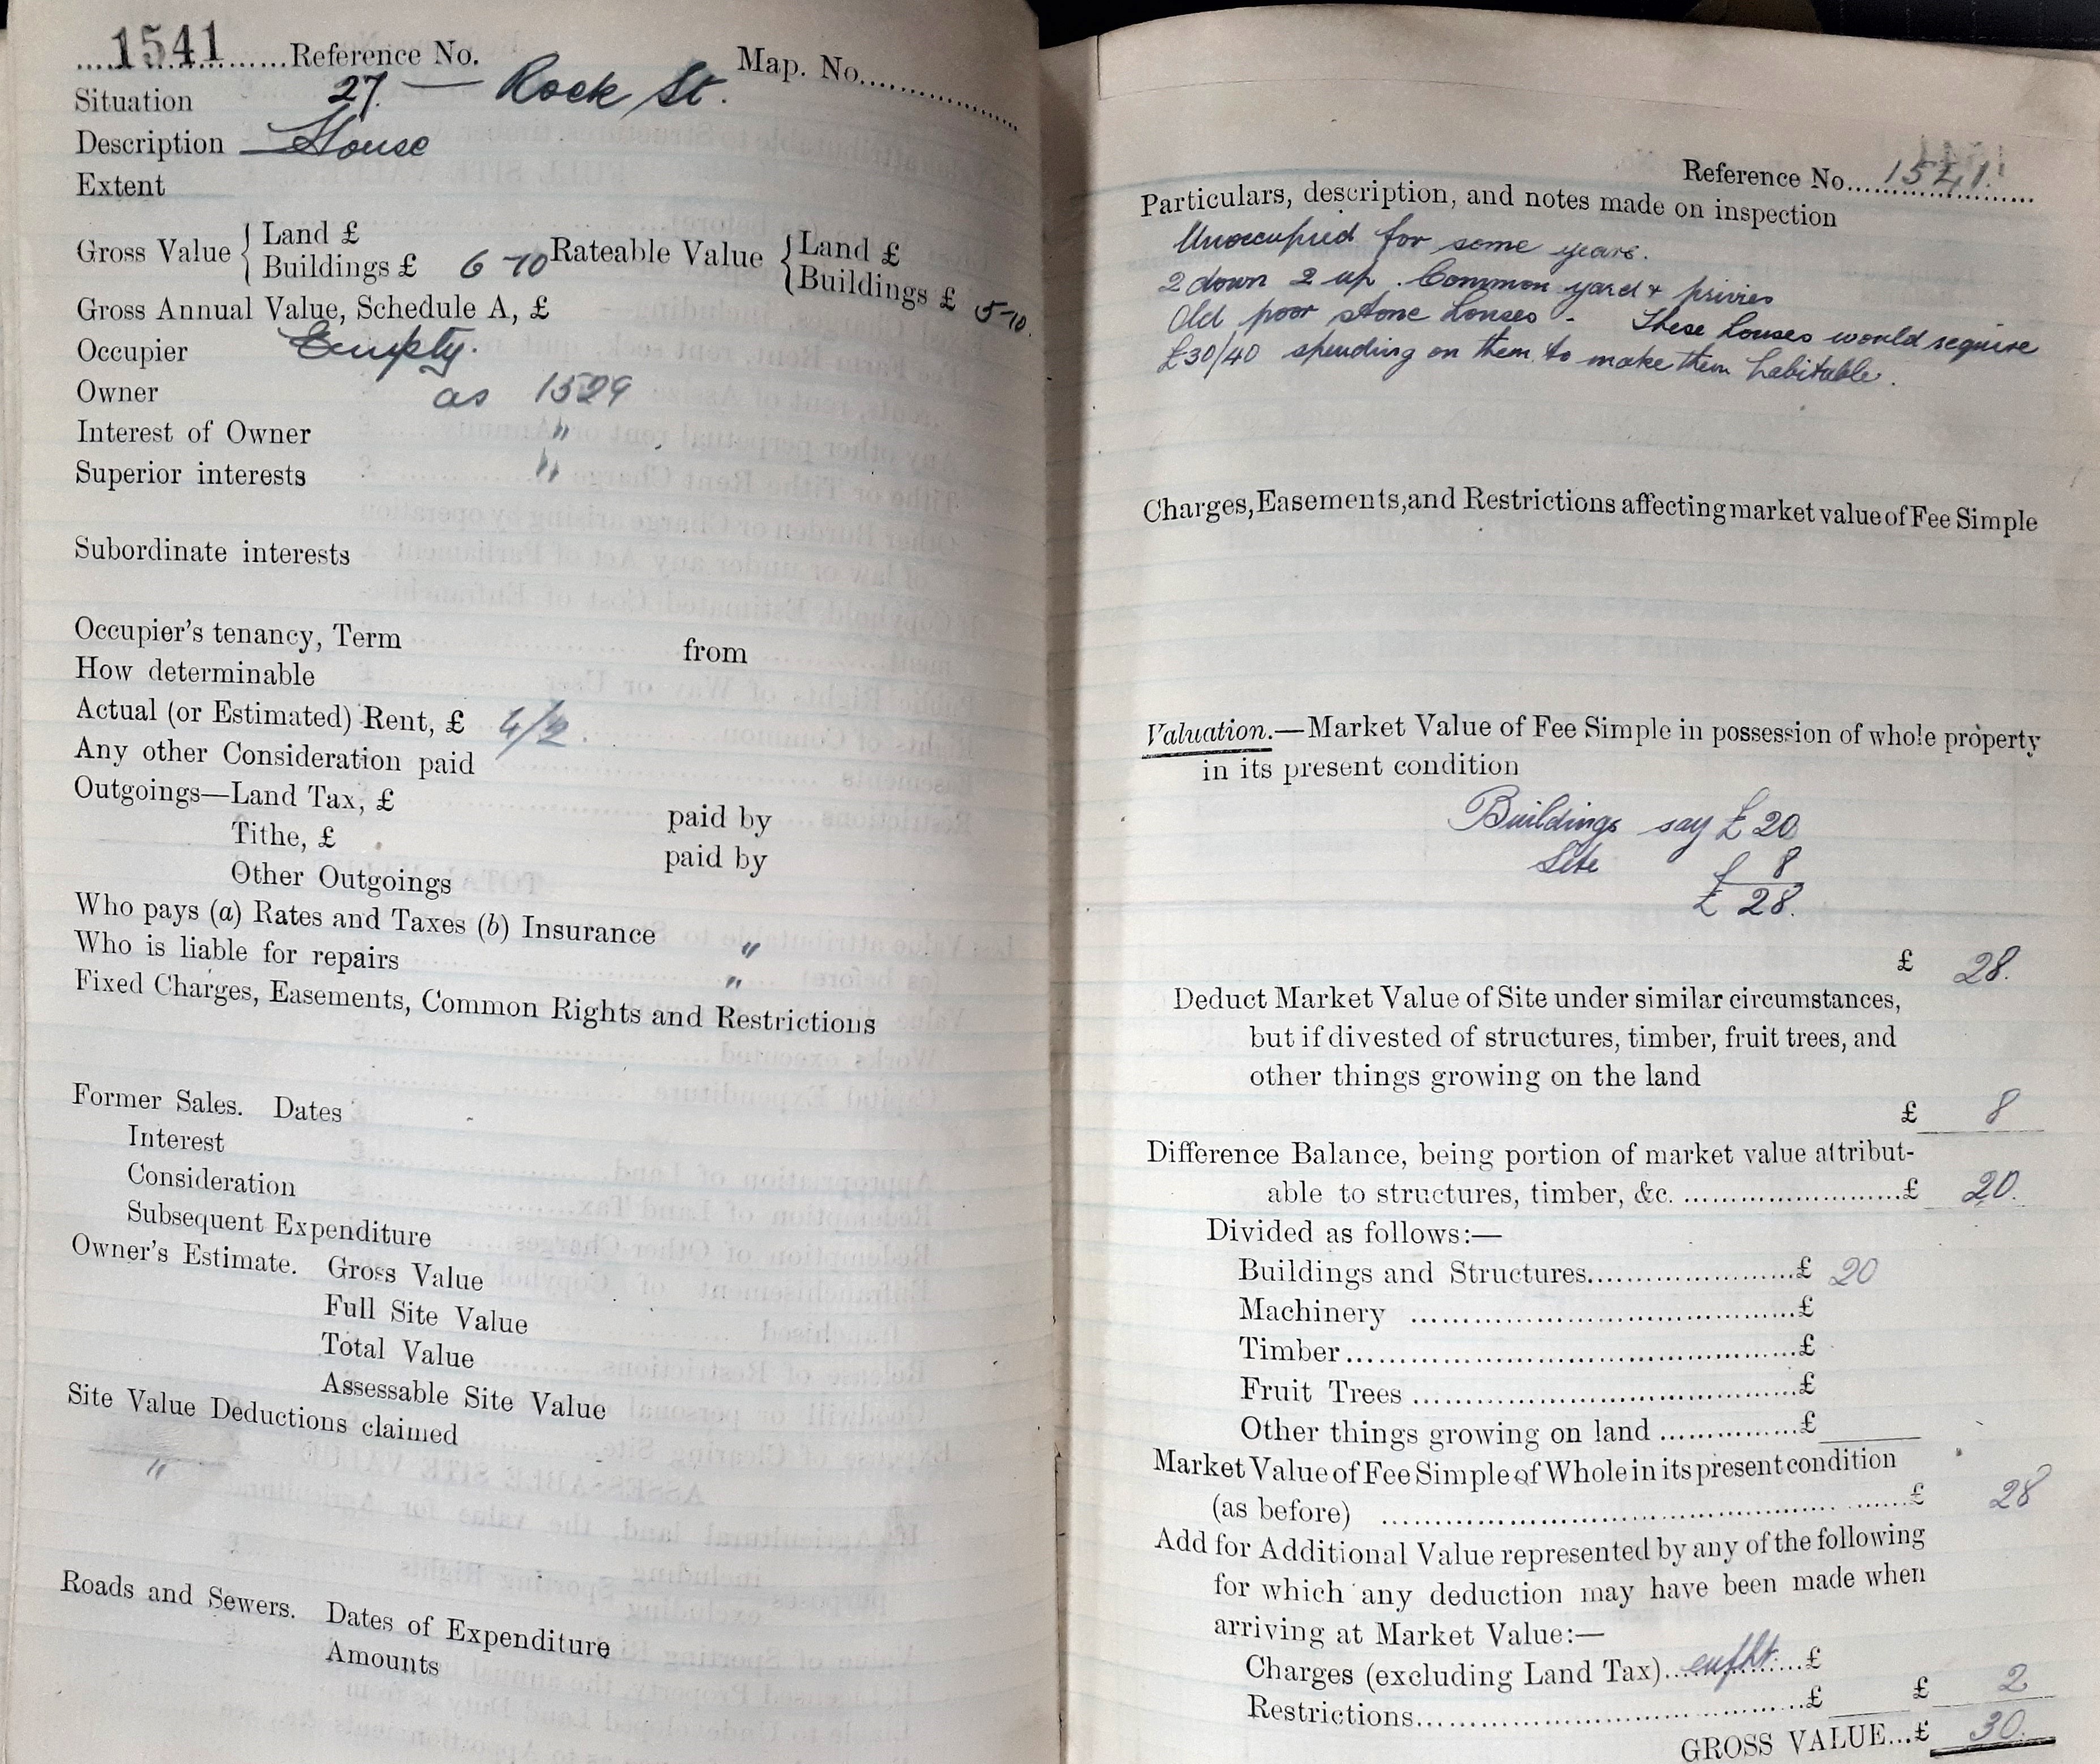 1541 Reference No. Map. No.
Situation 27. — Rock St.
Description House
Extent
Gross Value { Land £ Rateable Value { Land £
Buildings £ 6-10 Buildings £ 5-10.
Gross Annual Value, Schedule A, £
Occupier Empty.
Owner as 1529
Interest of Owner "
Superior interests "
Subordinate interests
Occupier's tenancy, Term from
How determinable
Actual (or Estimated) Rent, £ 4/2.
Any other Consideration paid
Outgoings—Land Tax, £ paid by
Tithe, £ paid by
Other Outgoings
Who pays (a) Rates and Taxes (b) Insurance "
Who is liable for repairs "
Fixed Charges, Easements, Common Rights and Restrictions
Former Sales. Dates
Interest
Consideration
Subsequent Expenditure
Owner's Estimate. Gross Value
Full Site Value
Total Value
Assessable Site Value
Site Value Deductions claimed
"
Roads and Sewers. Dates of Expenditure
Amounts
Reference No. 1541.
Particulars, description, and notes made on inspection
Unoccupied for some years.
2 down 2 up. Common yard + privies
Old poor stone houses - These houses would require
£30/40 spending on them to make them habitable.
Charges, Easements, and Restrictions affecting market value of Fee Simple
Valuation.—Market Value of Fee Simple in possession of whole property
in its present condition
Buildings say £ 20
Site £ 8
£ 28.
£ 28.
Deduct Market Value of Site under similar circumstances,
but if divested of structures, timber, fruit trees, and
other things growing on the land
£ 8
Difference Balance, being portion of market value attribut-
able to structures, timber, &c. £ 20.
Divided as follows:—
Buildings and Structures £ 20
Machinery £
Timber £
Fruit Trees £
Other things growing on land £
Market Value of Fee Simple of Whole in its present condition
(as before) £ 28
Add for Additional Value represented by any of the following
for which any deduction may have been made when
arriving at Market Value:—
Charges (excluding Land Tax) £
Restrictions £ £ 2
GROSS VALUE...£ 30.